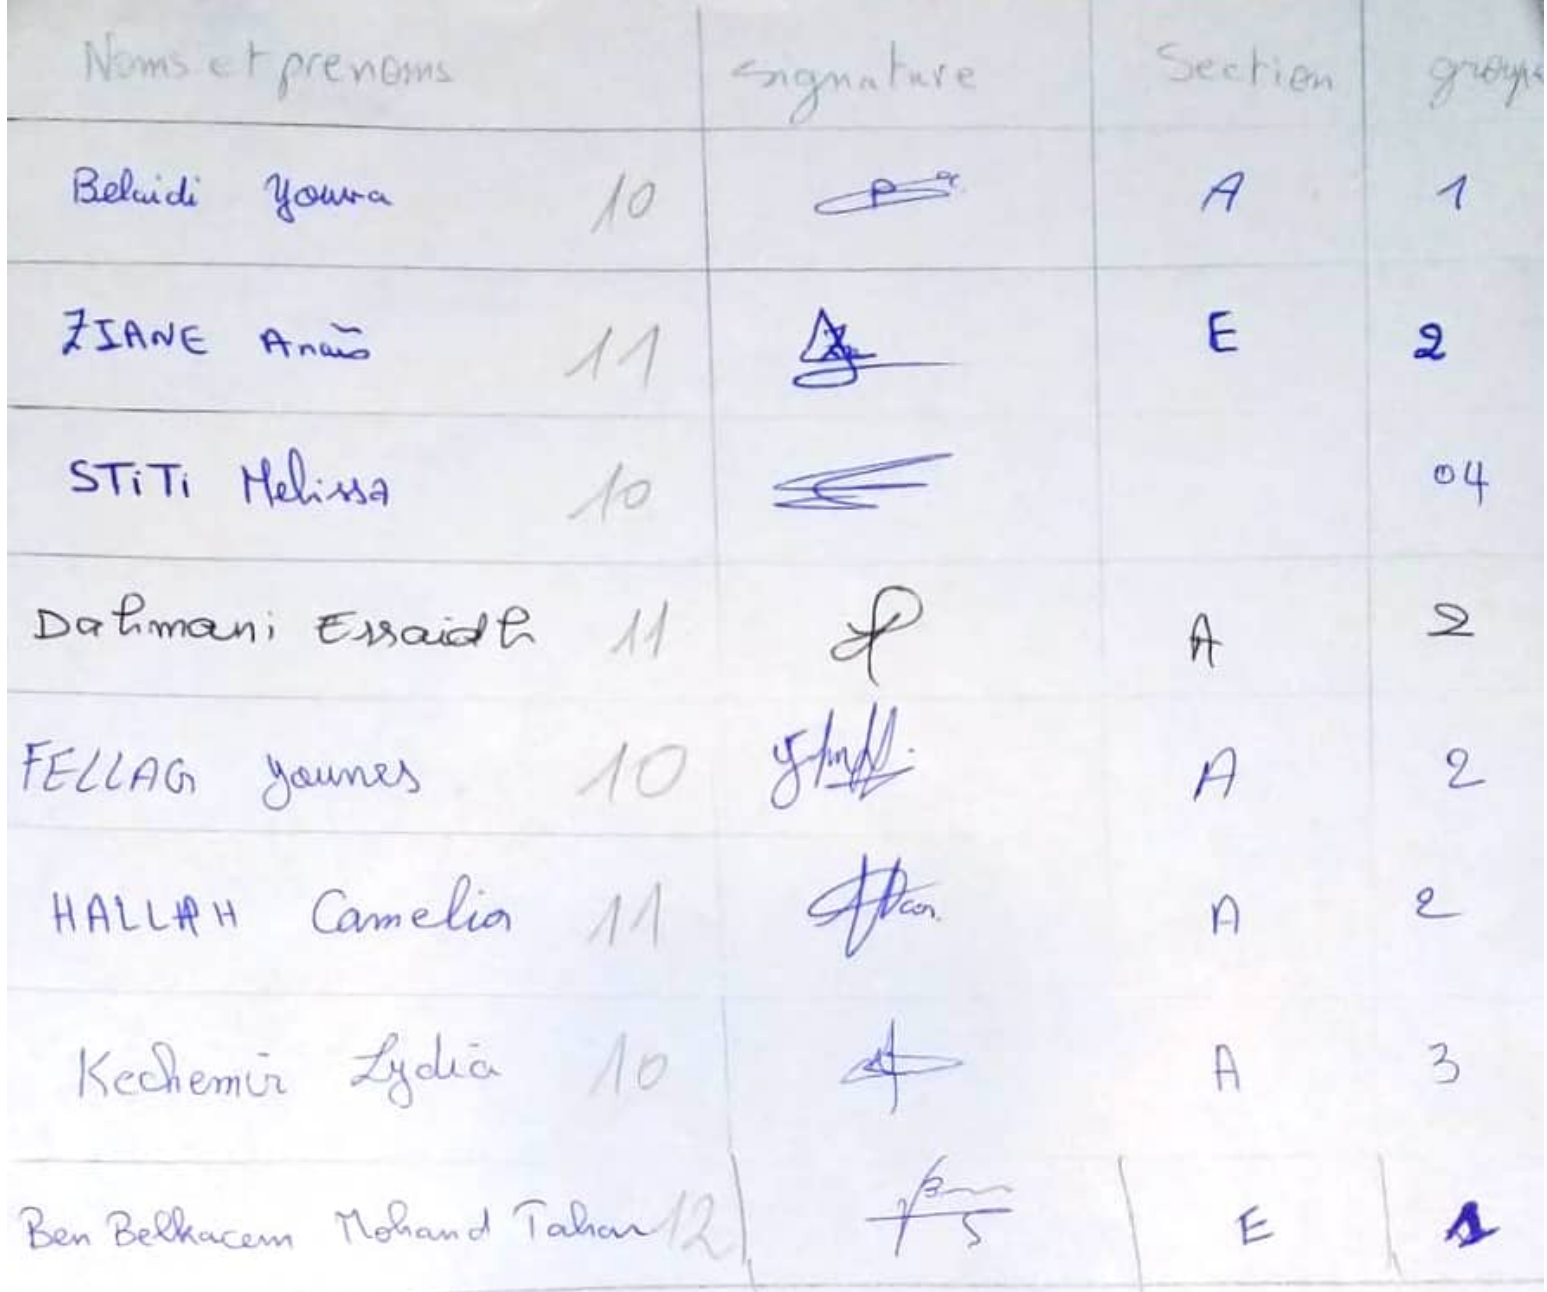 Noms et prenoms signature Section groupe
Belaidi Youra 10 A 1
ZIANE Anaïs 11 E 2
STiTi Melissa 10 04
Dahmani Essaidh 11 A 2
FELLAG Younes 10 A 2
HALLAH Camelia 11 A 2
Kechemir Lydia 10 A 3
Ben Belkacem Mohand Tahar 12 E 1